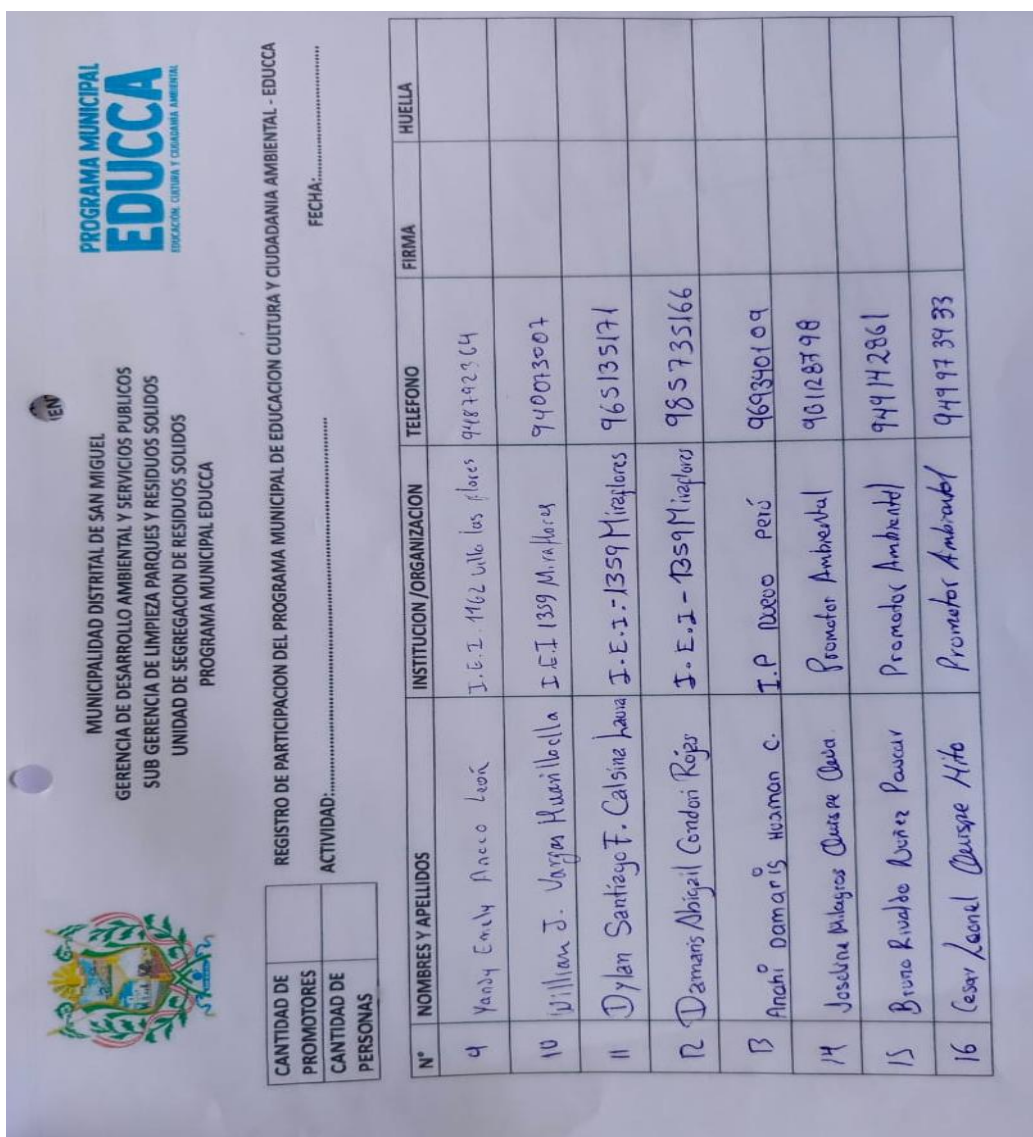 EN
MUNICIPALIDAD DISTRITAL DE SAN MIGUEL
GERENCIA DE DESARROLLO AMBIENTAL Y SERVICIOS PUBLICOS
SUB GERENCIA DE LIMPIEZA PARQUES Y RESIDUOS SOLIDOS
UNIDAD DE SEGREGACION DE RESIDUOS SOLIDOS
PROGRAMA MUNICIPAL EDUCCA
PROGRAMA MUNICIPAL
EDUCCA
EDUCACIÓN, CULTURA Y CIUDADANIA AMBIENTAL
CANTIDAD DE PROMOTORES
CANTIDAD DE PERSONAS
REGISTRO DE PARTICIPACION DEL PROGRAMA MUNICIPAL DE EDUCACION CULTURA Y CIUDADANIA AMBIENTAL - EDUCCA
ACTIVIDAD: FECHA:
N° NOMBRES Y APELLIDOS INSTITUCION /ORGANIZACION TELEFONO FIRMA HUELLA
9 Yandy Emely Ancco León I.E.I. 1162 villa las flores 948792364
10 Willian J. Vargas I.E.I 1359 Miraflores 940073007
11 Dylan Santiago F. Calsina Laura I.E.I.-1359 Miraflores 965135171
12 Damaris Abigail Condori Rojas I.E.I-1359 Miraflores 985735166
13 Anahi Damaris Huaman C. I.P Perú 969340109
14 Milagros Quispe Promotor Ambiental 901128798
15 Bruno Rivaldo Nuñez Paucar Promotor Ambiental 949142861
16 Cesar Leonel Quispe Hito Promotor Ambiental 949973933